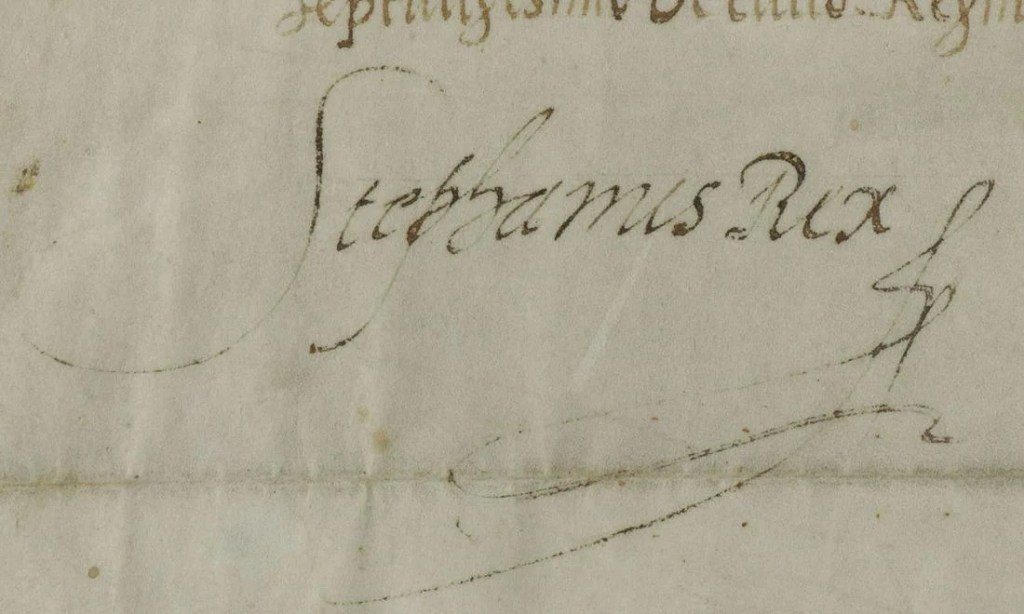 Septuagesimo Octauo. Regni
Stephanus Rex